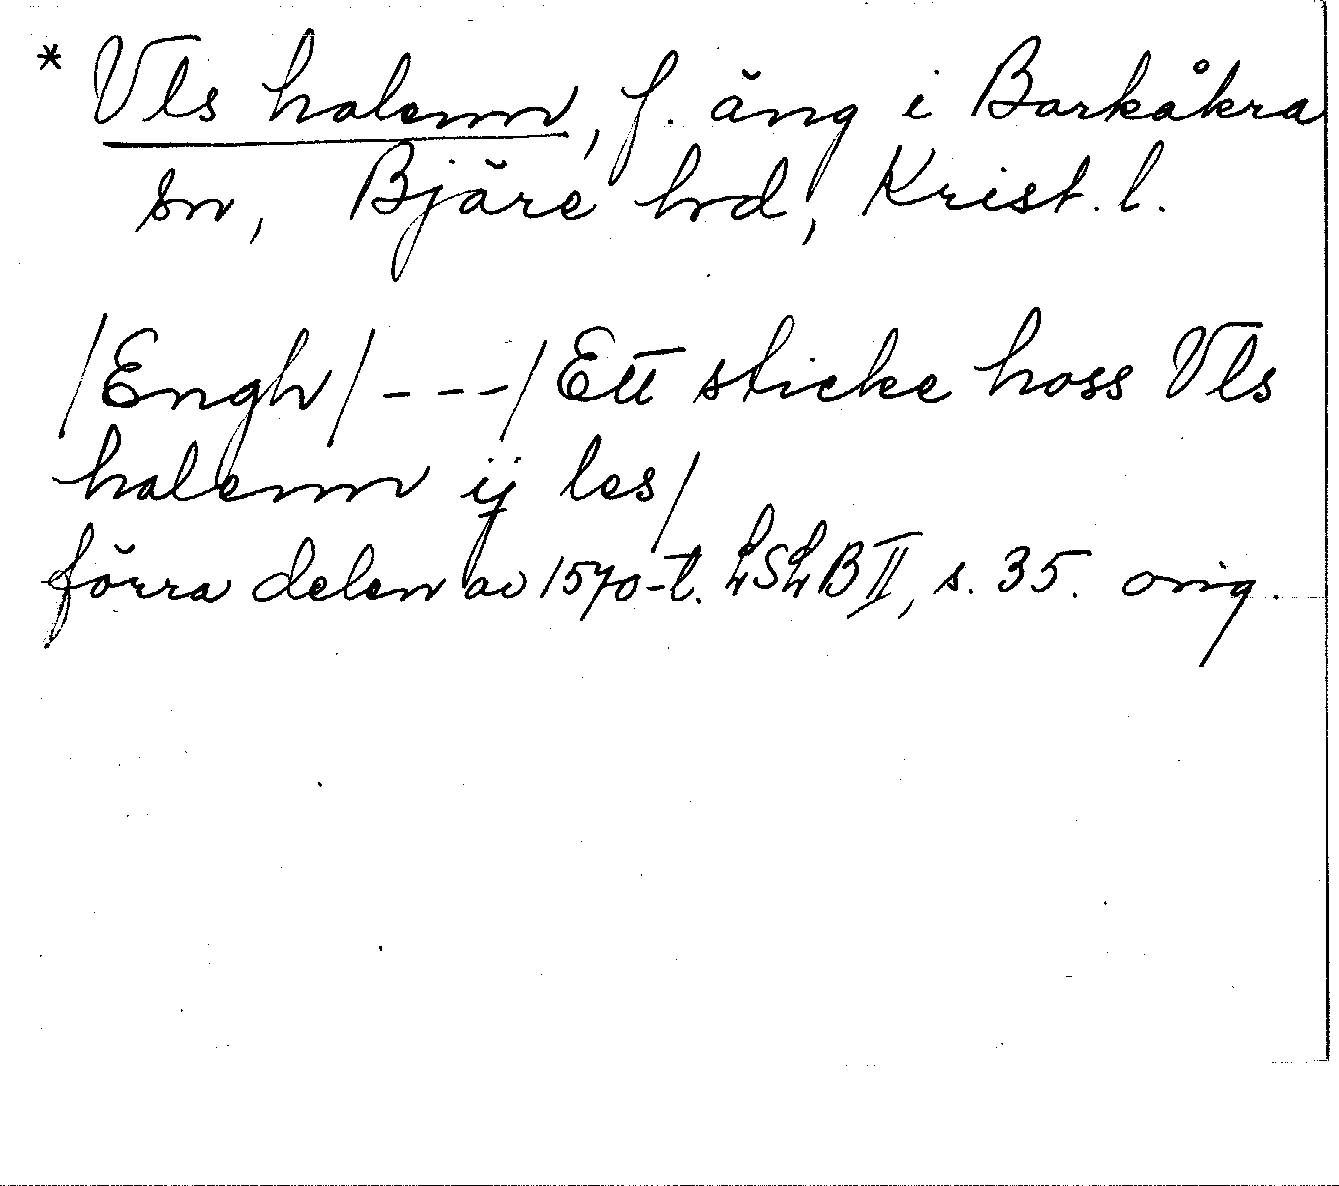 * Vls halenn, f. äng i Barkåkra
sn, Bjäre hd, Krist. l.
/Engh/ --- /Ett sticke hoss Vls
halenn ij les/
förra delen av 1570-t. LSLB II, s. 35. orig.